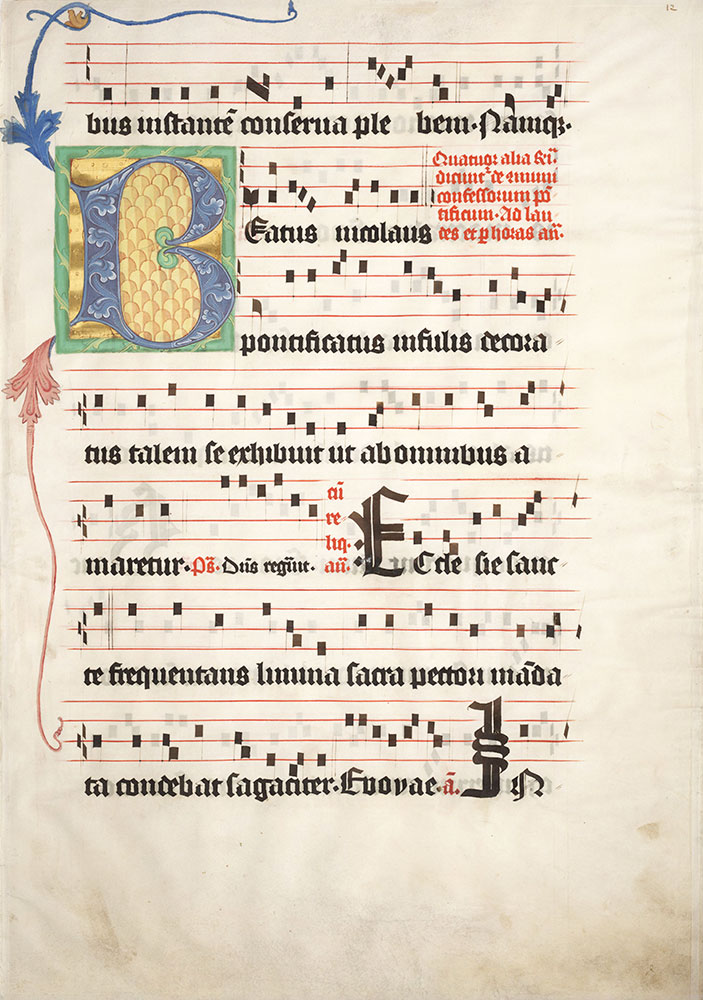 12
bus instantē conserua ple bem. Namq̄.
BEatus nicolaus
Quatuor alia sei
dicunt̾ de
confessorum pō
tificum. Ad lau
des et ꝑ horas añ.
pontificatus infulis decora
tus talem se exhibuit ut ab omnibus a
maretur. Ps̄. Dn̄s regn̄nt. cū re liq. an̄. ECcle sie sanc
te frequentans limina sacra pectori māda
ta condebat sagaciter. Evovae. ā. IN